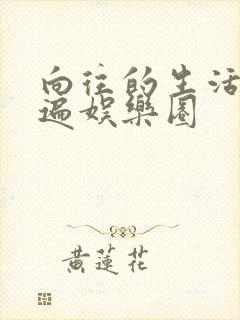 向往的生活
遍娱樂圈
黄蓮花